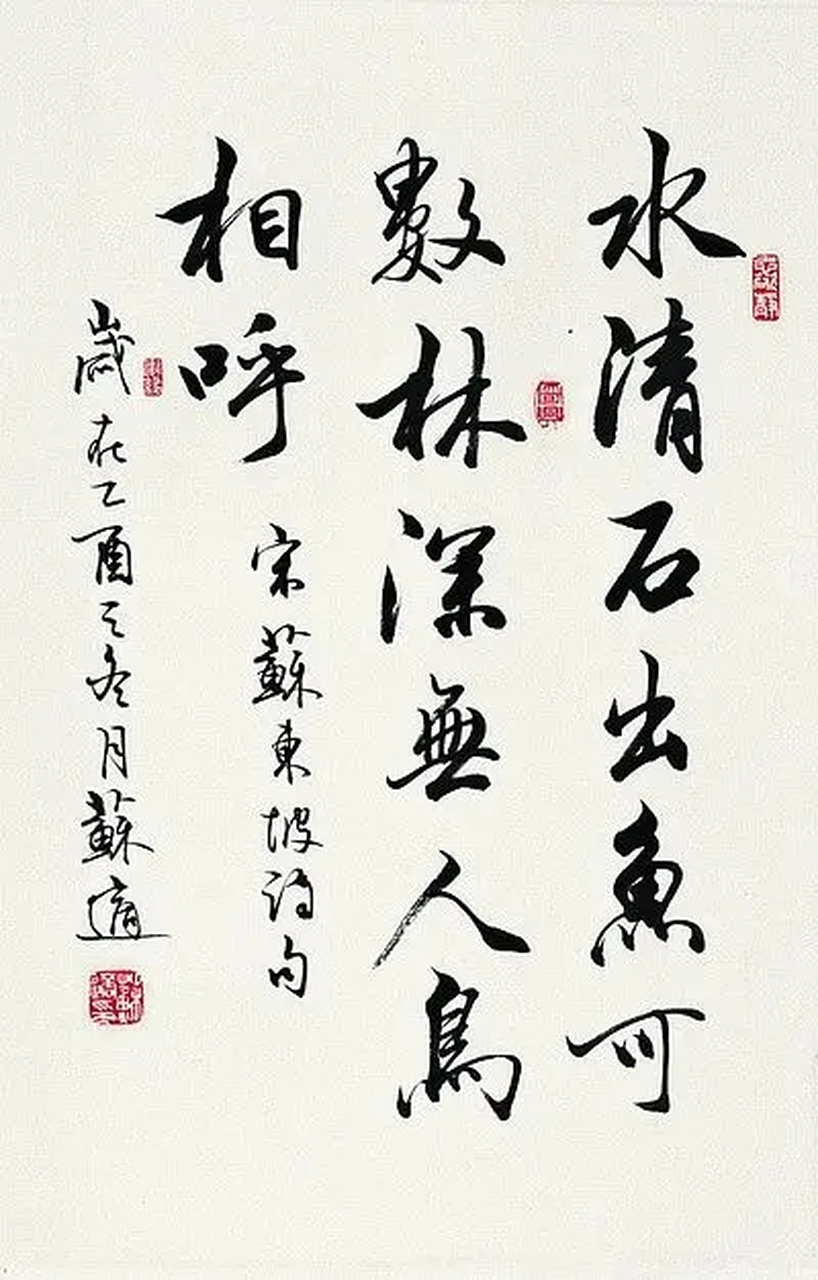 水清石出魚可
數林深無人鳥
相呼
宋蘇東坡詩句
歲在乙酉之冬月蘇適